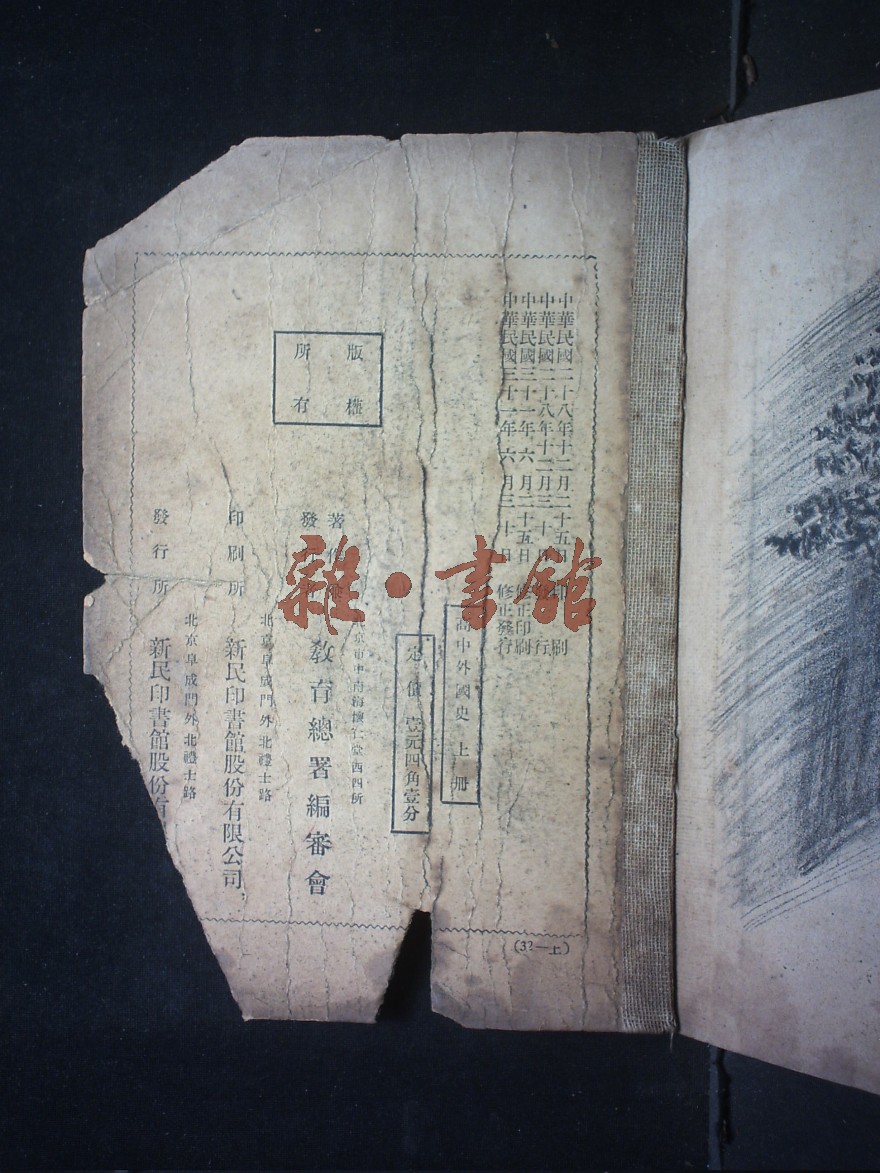 中華民國二十八年十二月二十五日印刷
中華民國二十八年十二月三十日發行
中華民國三十一年六月二十五日修正印刷
中華民國三十一年六月三十日修正發行
高中外國史 上冊
定價 壹元四角壹分
版權
所有
北京市中南海懷仁堂西四所
著作
發行
教育總署編審會
北京阜成門外北禮士路
印刷所 新民印書館股份有限公司
北京阜成門外北禮士路
發行所 新民印書館股份有
(32—上)
雜·書館